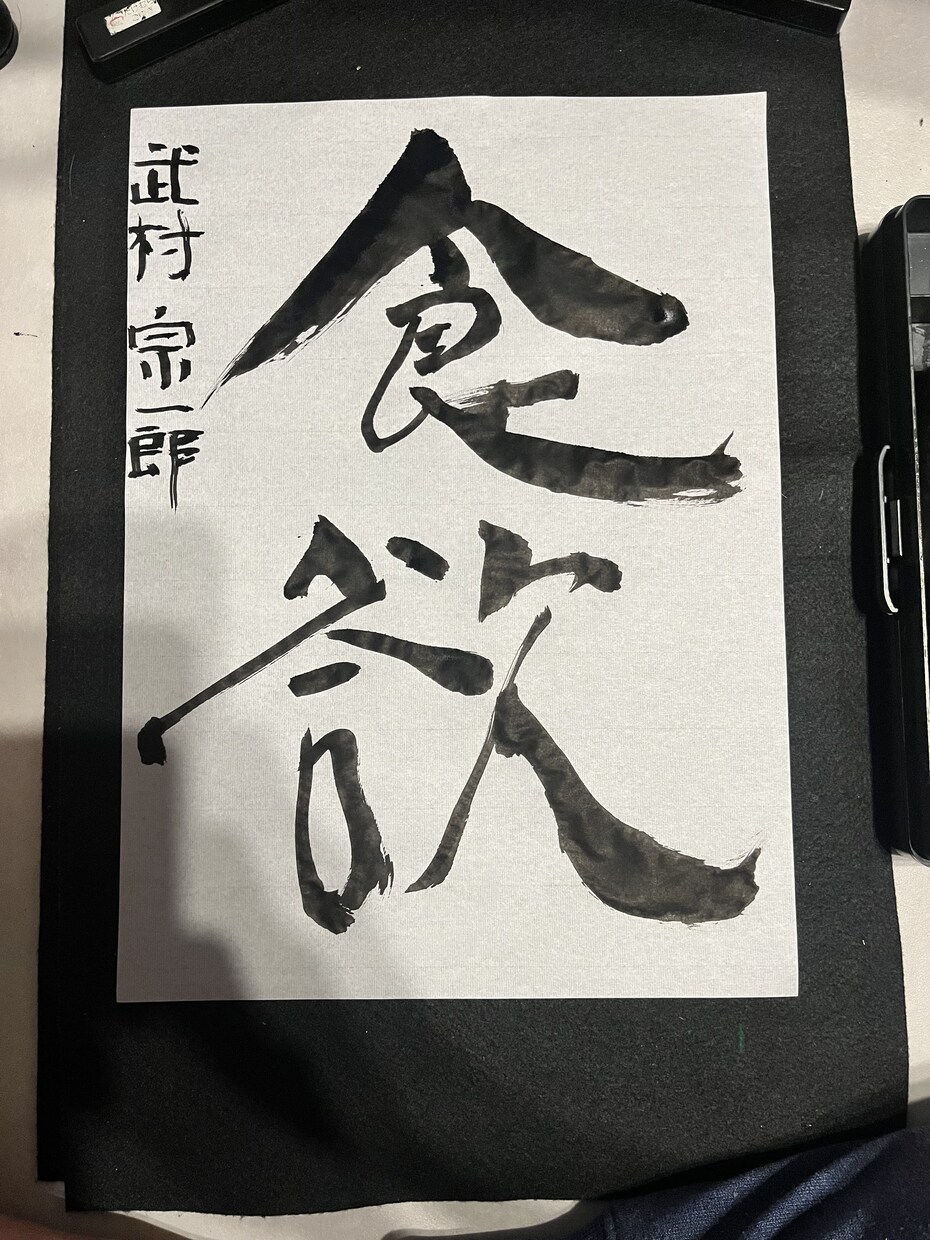 食欲
武村宗一郎